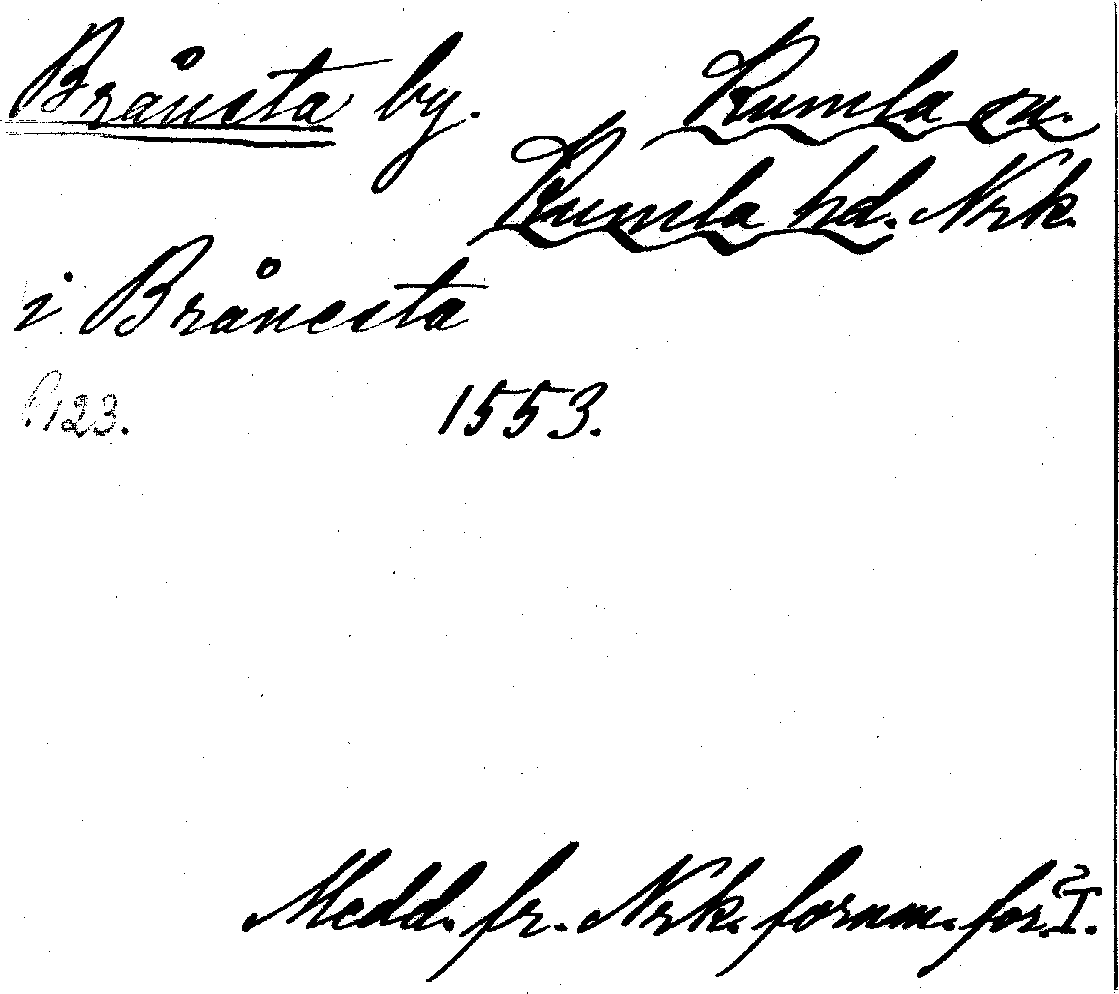 Brånsta by. Kumla sn.
Kumla hd. Nrk.
i Brånesta
P. 123. 1553.
Medd. fr. Nrk. fornm. för. I.